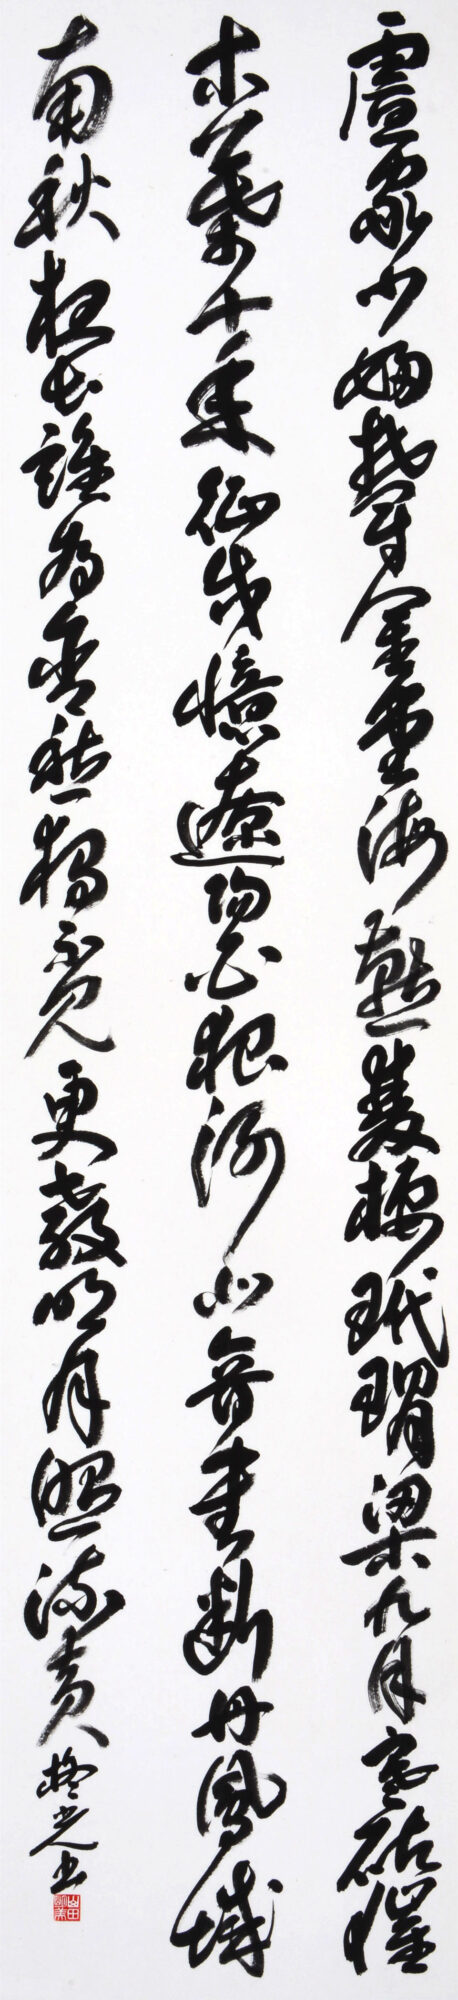 盧家少婦鬱金堂海燕雙棲玳瑁梁九月寒砧催
木葉十年征戍憶遼陽白狼河北音書斷丹鳳城
南秋夜長誰為含愁獨不見更教明月照流黃
光書
山田